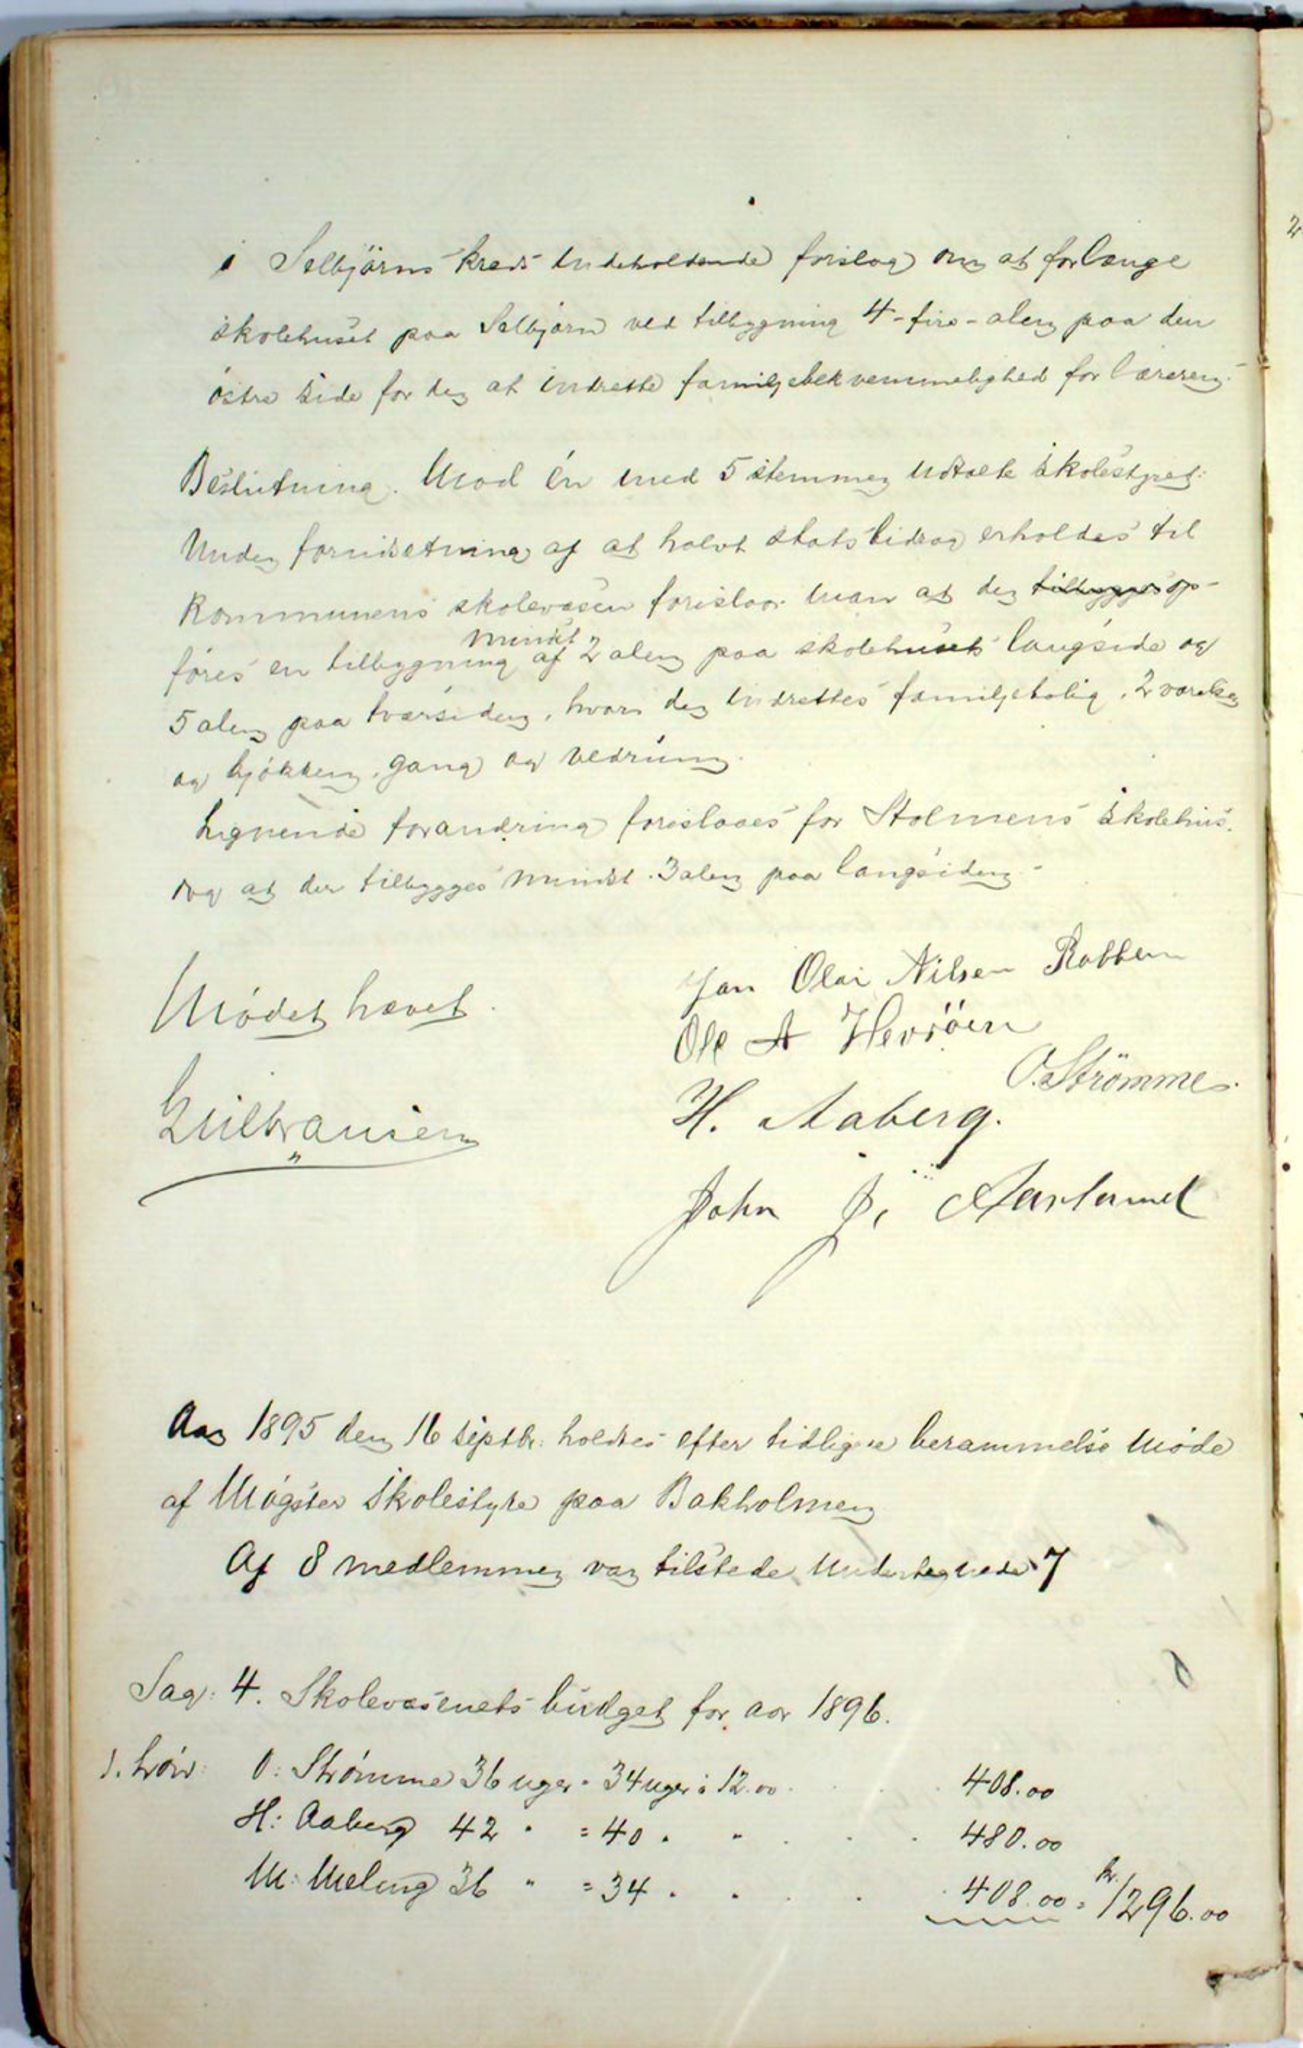 i Selbjörns kreds indeholdende forslag om at forlænge
skolehuset paa Selbjørn ved tilbygning 4-fire-alen paa den
östre side for der at indrette familjebekvemmelighed for læreren.
Beslutning. Mod én med 5 stemmer udtalte skolestyret:
Under forudsetning af at halvt statsbidrag erholdes til
kommunens skolevæsen foreslaar man at der tilbygges op-
føres en tilbygning mindst af 2 alen paa skolehusets langside og
5 alen paa tværsiden, hvori der indrettes familjebolig, 2 værelser
og kjøkken, gang og vedrum.
Lignende forandring foreslaaes for Stolmens skolehus,
dog at der tilbygges mindst 3 alen paa langsiden.
Mødet hævet.
Jan Olai Nilsen Rabben
Ole A Hevröen
O. Strömme.
H. Aaberg.
John J. Aarland
Aar 1895 den 16 septbr. holdtes efter tidligere berammelse møde
af Møgster skolestyre paa Bakholmen
Af 8 medlemmer var tilstede undertegnede 7
Sag: 4. Skolevæsenets budget for aar 1896.
1. Løn: O: Strømme 36 uger = 34 uger à 12.00 . . . 408.00
H: Aaberg 42 " = 40 " " . . . 480.00
M: Meling 36 " = 34 " " . . . 408.00 = kr. 1296.00